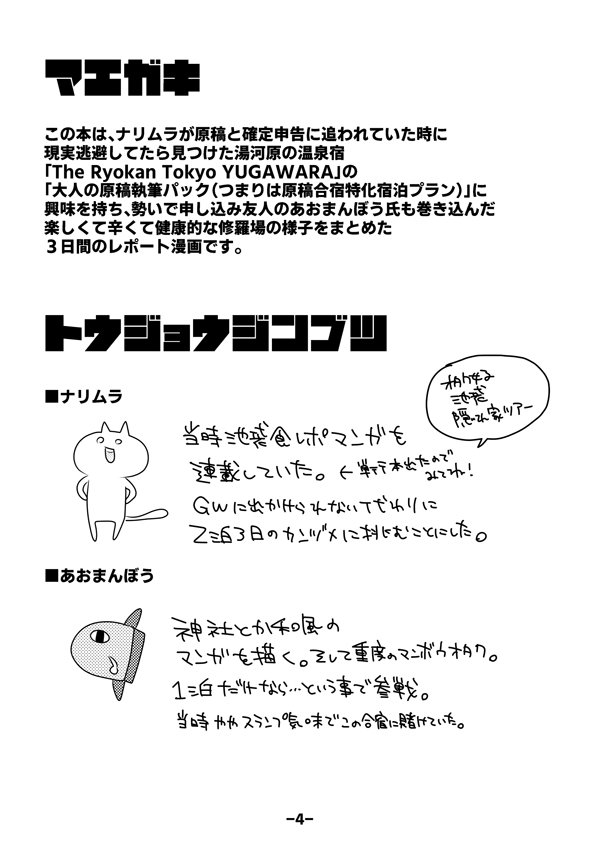 マエガキ
この本は、ナリムラが原稿と確定申告に追われていた時に
現実逃避してたら見つけた湯河原の温泉宿
「The Ryokan Tokyo YUGAWARA」の
「大人の原稿執筆パック（つまりは原稿合宿特化宿泊プラン）」に
興味を持ち、勢いで申し込み友人のあおまんぼう氏も巻き込んだ
楽しくて辛くて健康的な修羅場の様子をまとめた
３日間のレポート漫画です。
トウジョウジンブツ
■ナリムラ
池袋
隠れ家ツアー
当時池袋食レポマンガを
連載していた。←単行本出たので
みてね！
GWに出かけられない代わりに
2泊3日のカンヅメに挑むことにした。
■あおまんぼう
神社とか和風の
マンガを描く。そして重度のマンボウオタク。
1泊だけなら…という事で参戦。
当時ややスランプ気味でこの合宿に賭けていた。
−4−